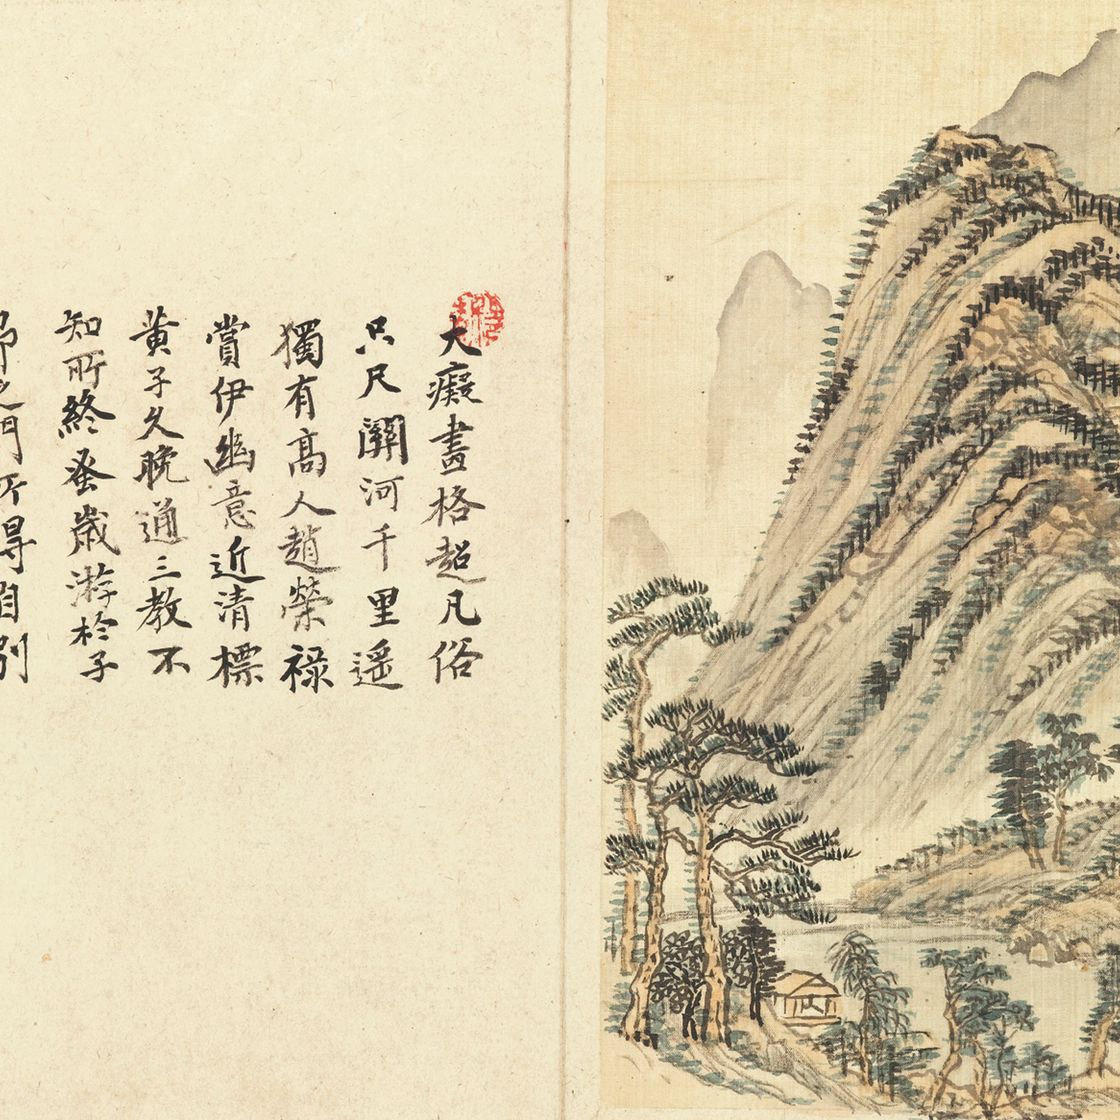 大癡畫格超凡俗
只尺關河千里遥
獨有高人趙榮禄
賞伊幽意近清標
黄子久晚通三教不
知所終蚤歲游於子
昂之門所得自別